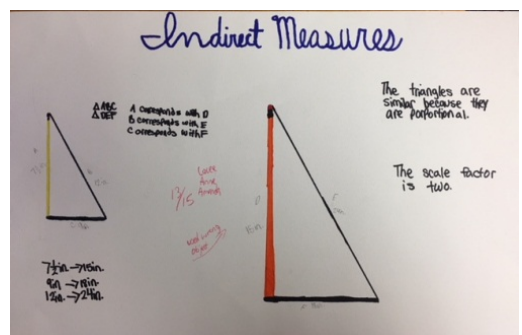 Indirect Measures
△ABC
△DEF
A corresponds with D
B corresponds with E
C corresponds with F
The triangles are
similar because they
are porportional.
The scale factor
is two.
13/15
7½in. → 15in.
9in → 18in.
12in. → 24in.